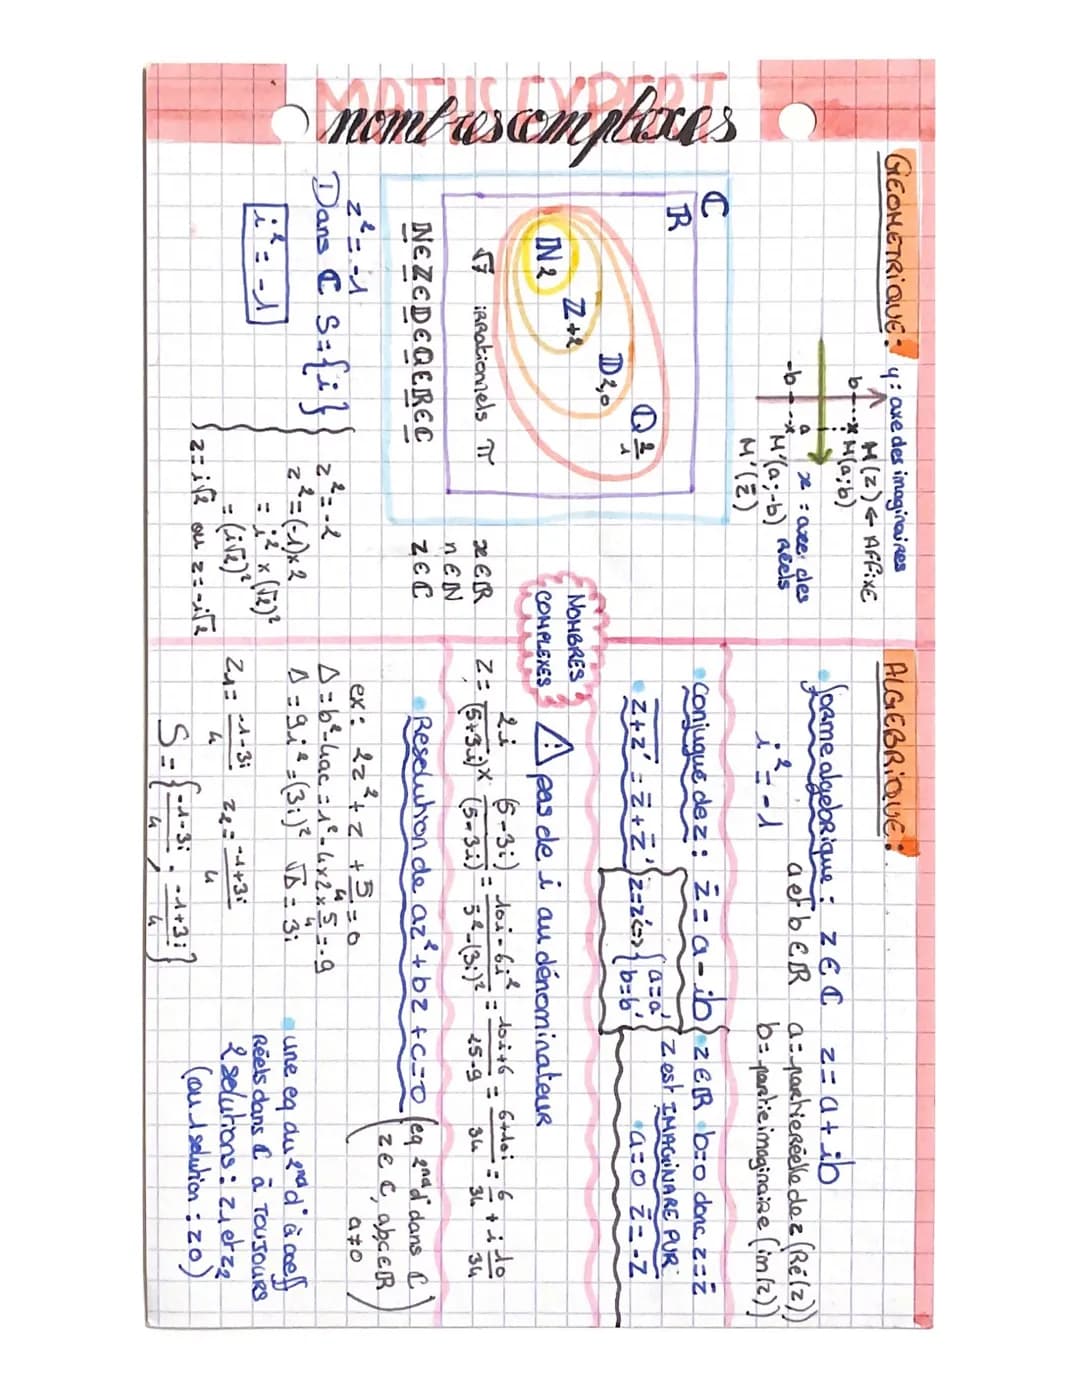 MATHS EXPERT
nombres complexes
GEOMETRIQUE:
y: axe des imaginaires
M(z) ← AFFIXE
b
M(a;b)
a
x: axe des
Réels
-b
M'(a;-b)
M'(z̄)
ℂ
ℝ
ℕ 2
ℤ +2
𝔻 2,0
ℚ 2/1
√7 irrationnels π
N∈Z∈D∈Q∈R∈C
x∈ℝ
n∈ℕ
z∈ℂ
z² = -1
Dans ℂ S={i}
i² = -1
z² = -2
z² = (-1)×2
= i² × (√2)²
= (i√2)²
z = i√2 ou z = -i√2
NOMBRES
COMPLEXES
ALGEBRIQUE:
forme algebrique: z∈ℂ z = a + ib
i² = -1 a et b ∈ℝ
a = partie réelle de z (Ré(z))
b = partie imaginaire (im(z))
conjugué de z: z̄ = a - ib
z∈ℝ b=0 donc z = z̄
z est IMAGINAIRE PUR
a=0 z̄ = -z
z+z' = z̄ + z̄'
z=z' <=> { a=a'
b=b'
⚠ pas de i au dénominateur
z = 2i/(5+3i) × (5-3i)/(5-3i) = 10i-6i²/5²-(3i)² = 10i+6/25-9 = 6+10i/34 = 6/34 + i 10/34
Resolution de az² + bz + c = 0 (eq 2nd d° dans ℂ
z∈ℂ, a,b,c∈ℝ
a≠0)
ex: 2z² + z + 5/4 = 0
Δ = b²-4ac = 1²-4×2×5/4 = -9
Δ = 9i² = (3i)² √Δ = 3i
z1 = -1-3i/4 z2 = -1+3i/4
S = {-1-3i/4 ; -1+3i/4}
une eq du 2nd d° à coeff
Réels dans ℂ à TOUJOURS
2 solutions: z1 et z2
(ou 1 solution: z0)